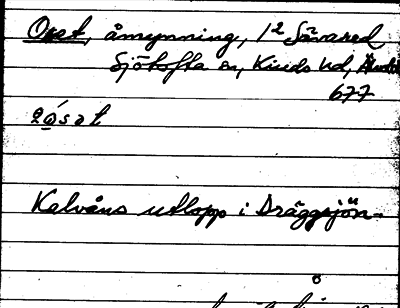 Oset, åmynning, 1² Sävared
Sjötofta sn, Kinds hd,
677
Kalvåns utlopp i Dräggsjön-